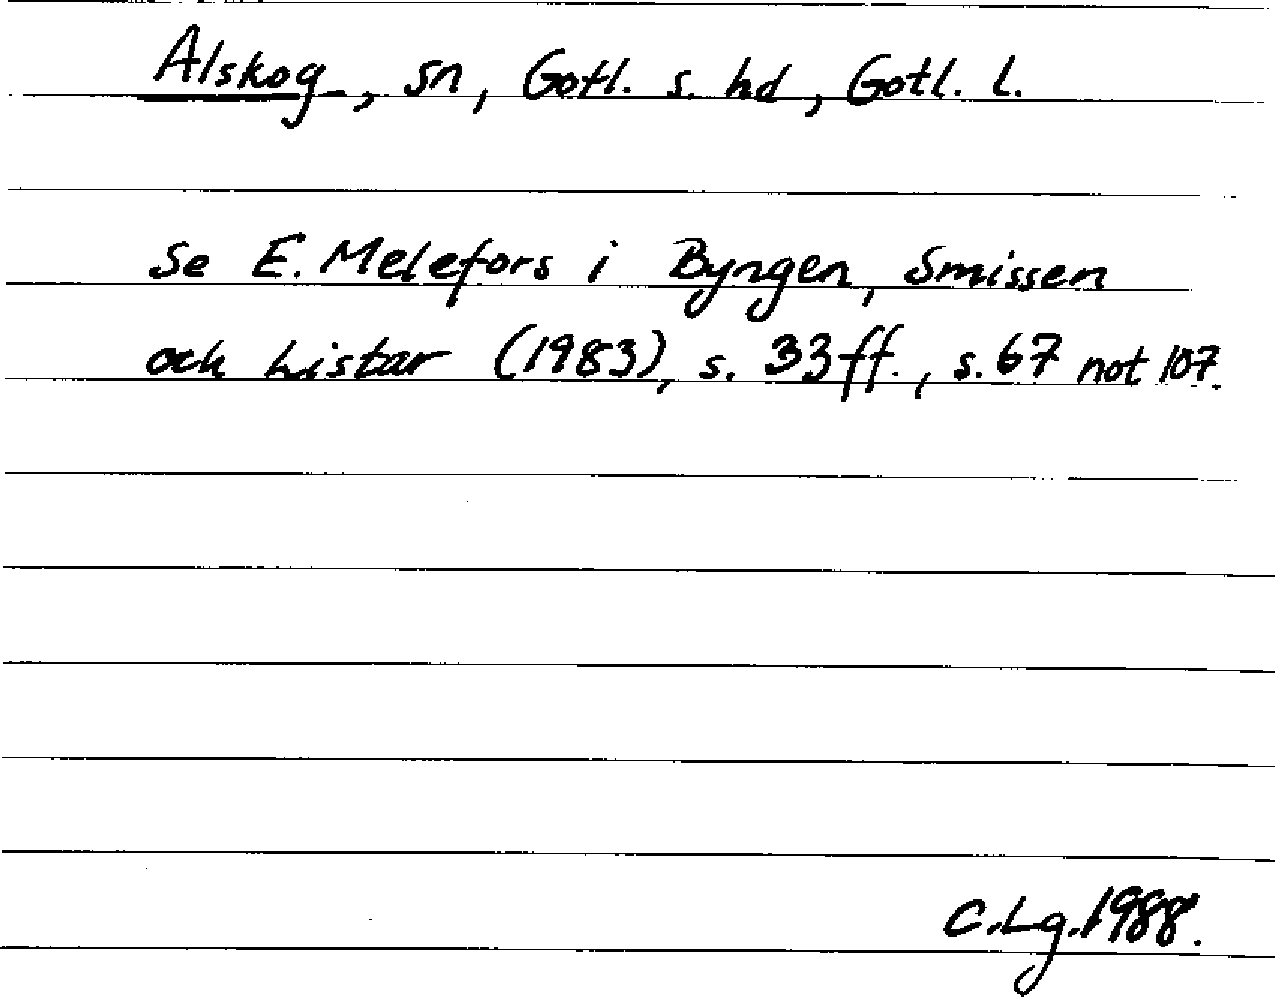 Alskog, sn, Gotl. s. hd, Gotl. l.
Se E. Melefors i Byngen, Smissen
och Listar (1983), s. 33 ff., s. 67 not 107.
C. Lg. 1988.